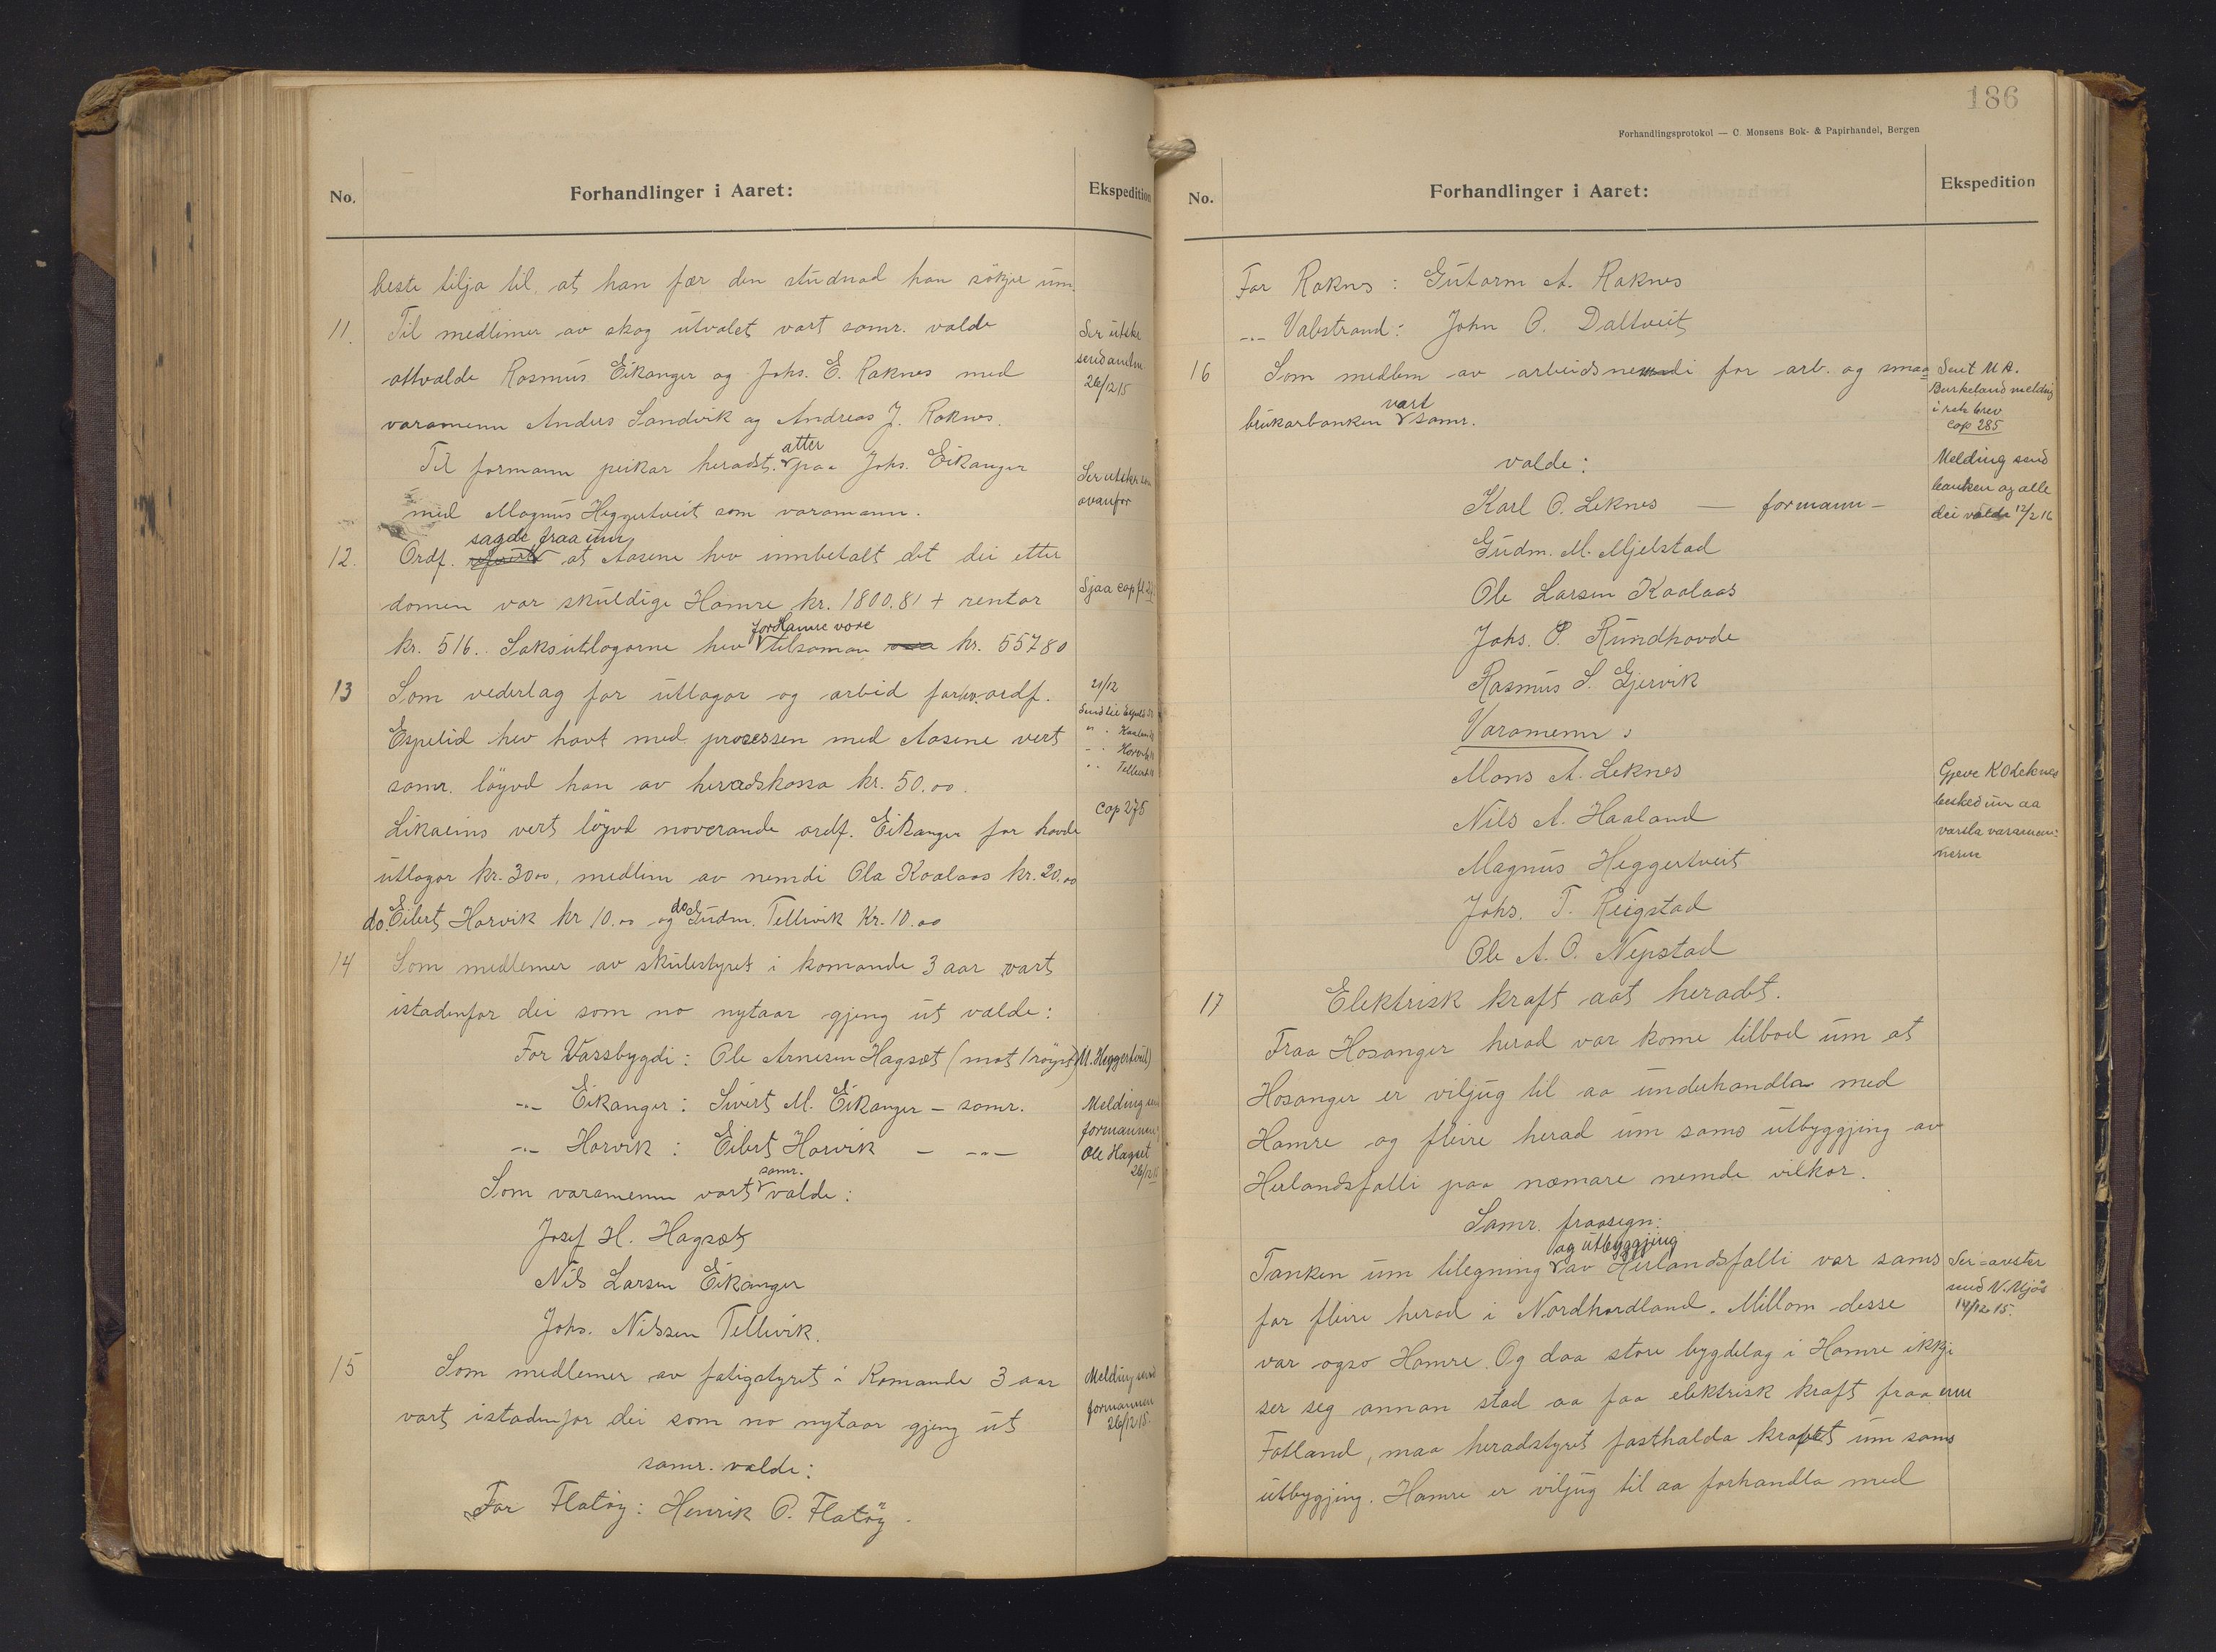 No.
Forhandlinger i Aaret:
Ekspedition
beste tilja til at han fær den studnad han søkjer um.
11. Til medlimer av skog utvalet vart samr. valde
attvalde Rasmus Eikanger og Johs. E. Raknes med
varamenn Anders Sandvik og Andreas J. Raknes.
Til formann peikar heradst. atter paa Johs. Eikanger
med Magnus Heggertveit som varamann.
12. Ordf. sagde fraa um at Aasene hev innbetalt det dei etter
domen var skuldige Hamre kr. 1800.81 + rentor
kr. 516. Saksutlogorne hev for Hamre vore tilsaman kr. 557 80
13 Som vederlag for utlogor og arbeid forhv. ordf.
Espelid hev havt med prosessen med Aasene vert
samr. løyvd han av heradskassa kr. 50.00.
Likaeins vert løyvd noverande ordf. Eikanger for havde
utlogor kr. 30 00, medlem av nemdi Ola Kaalaas kr. 20.00
do. Eilert Horvik kr 10.00 og do Gudm. Tellevik Kr. 10.00
14 Som medlemer av skulestyret i komande 3 aar vart
istadenfor dei som no nytaar gjeng ut valde:
For Vassbygdi: Ole Arnesen Hagsæt (mot 1 røyst) M. Heggertveit)
-"- Eikanger: Sivert M. Eikanger - samr.
-"- Horvik: Eilert Horvik - -"-
Som varamenn vart samr. valde:
Josef H. Hagsæt
Nils Larsen Eikanger
Johs. Nilssen Tellevik.
15 Som medlemer av fatigstyret i Komande 3 aar
vart istadenfor dei som no nytaar gjeng ut
samr. valde:
For Flatøy: Henrik O. Flatøy.
Ser utskr.
send amtm.
26/12 15
Ser utskr som
ovanfor
Sjaa cop fl.
21/12
Send til Espelid
Cop 275
Melding send
formannen,
Ole Hagset
26/12 15
Melding send
formannen
26/12 15.
186
Forhandlingsprotokol — C. Monsens Bok- & Papirhandel, Bergen
No.
Forhandlinger i Aaret:
Ekspedition
For Raknes: Gutorm A. Raknes
-"- Valestrand: John O. Daltveit
16 Som medlem av arbeidsnemdi for arb. og smaa
brukarbanken vart samr.
valde:
Karl O. Leknes — formann —
Gudm. M. Mjelstad
Ole Larsen Kaalaas
Johs. O. Rundhovde
Rasmus S. Gjervik
Varamenn:
Mons A. Leknes
Nils A. Haaland
Magnus Heggertveit
Johs. T. Reigstad
Ole A. O. Nepstad
17 Elektrisk kraft aat heradet.
Fraa Hosanger herad var kome tilbod um at
Hosanger er viljug til aa underhandla med
Hamre og fleire herad um sams utbyggjing av
Herlandsfalli paa næmare nemde vilkor.
Samr. fraasegn:
Tanken um tilegning og utbyggjing av Herlandsfalli var sams
for fleire herad i Nordhordland. Millom desse
var ogso Hamre. Og daa store bygdelag i Hamre ikkje
ser seg annan stad aa faa elektrisk kraft fraa enn
Fotland, maa heradstyret fasthalda kravet um sams
utbygjing. Hamre er viljug til aa forhandla med
Sent M A.
Burkeland melding
i rek brev
Cop 285
Melding send
banken og alle
dei valde 12/2 16
Gjeve K O Leknes
besked um aa
varsla varamen=
nerne
send N. Mjøs
14/12 15.